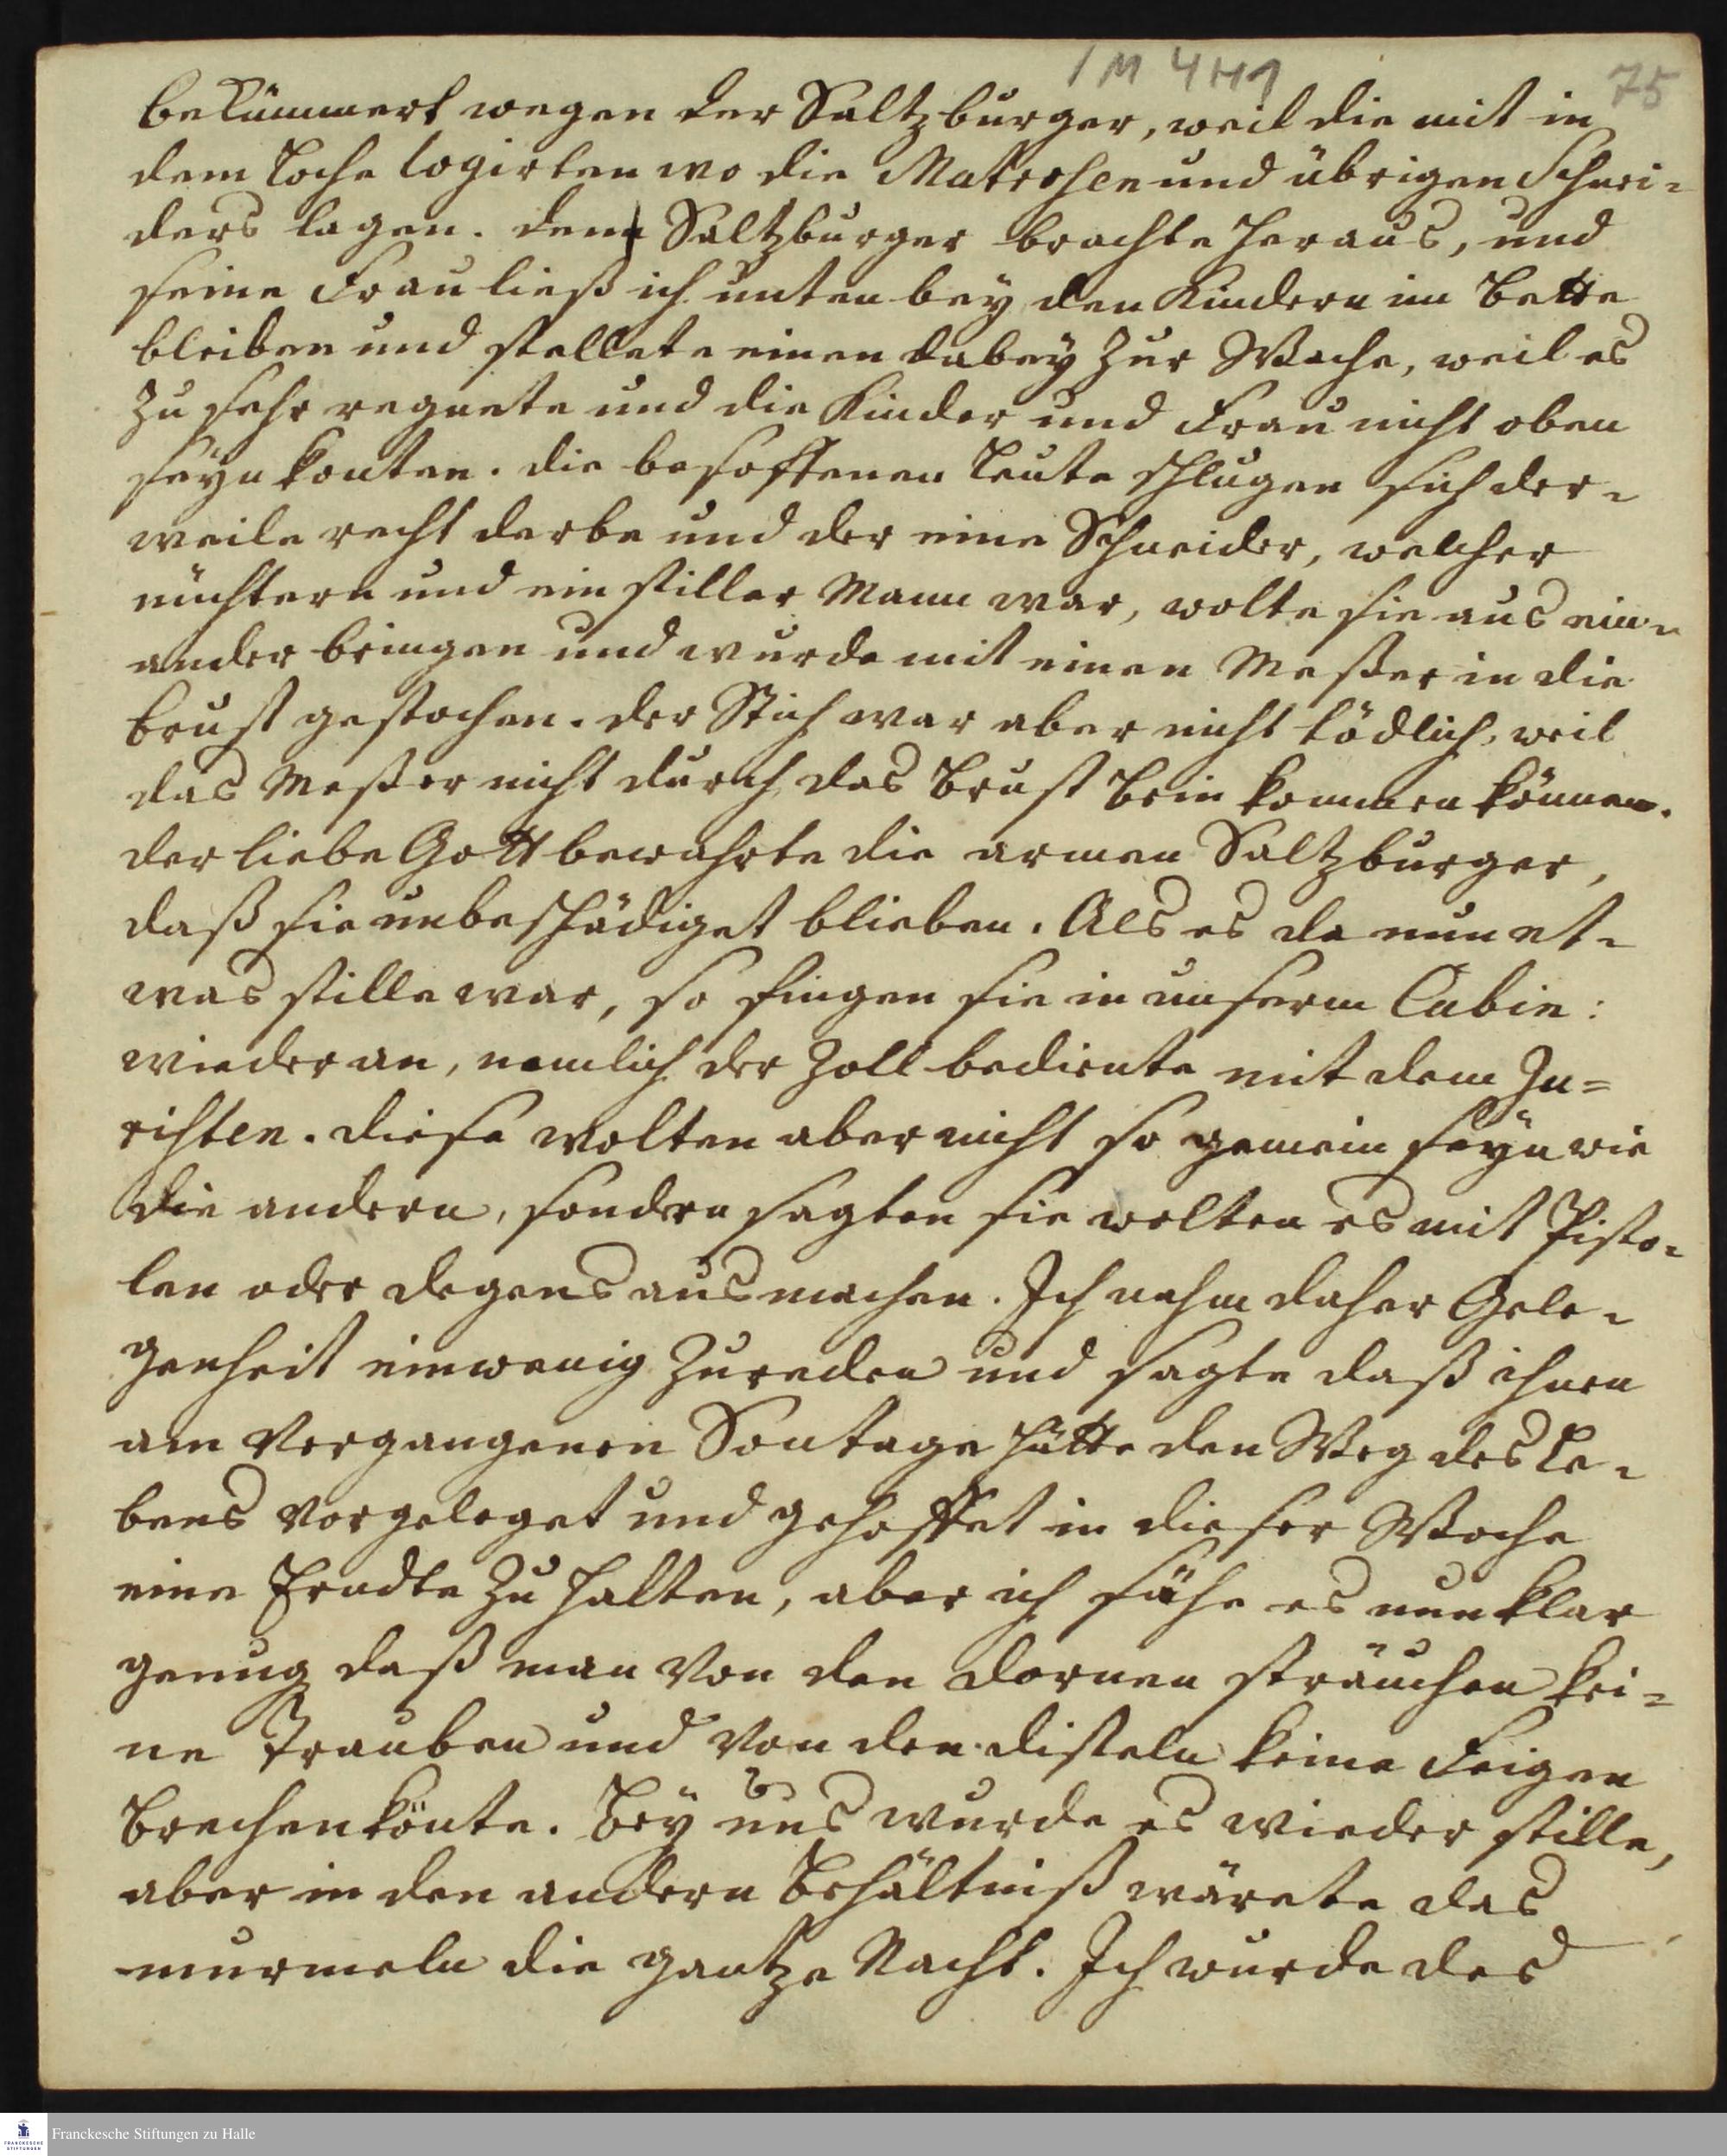 1 M 4 H 1
75
bekümmert wegen der Saltzburger, weil die mit in
dem Loche logirten wo die Matrosen und übrigen Schnei-
ders lagen. den Saltzburger brachte heraus, und
seine Frau ließ ich unten bey den Kindern im Bette
bleiben und stellete einen dabey zur Wache, weil es
zu sehr regnete und die Kinder und Frau nicht oben
seyn konten. die besoffenen Leute schlugen sich der-
weile recht derbe und der eine Schneider, welcher
nüchtern und ein stiller Mann war, wolte sie aus ein-
ander bringen und wurde mit einen Messer in die
Brust gestochen. der Stich war aber nicht tödlich, weil
das Messer nicht durch das Brust Bein kommen können.
der liebe Gott bewahrte die armen Saltzburger,
daß sie unbeschädiget blieben. Als es da nun et-
was stille war, so fingen sie in unserm Cabin:
wieder an, nemlich der Zoll bediente mit dem Ju-
risten. diese wolten aber nicht so gemein seyn wie
die andern, sondern sagten sie wolten es mit Pisto-
len oder degens ausmachen. Ich nahm daher Gele-
genheit ein wenig zureden und sagte daß ihnen
am Vergangenen Sontage hätte den Weg des Le-
bens vorgeleget und gehoffet in dieser Woche
eine Erndte zu halten, aber ich sähe es nun klar
genug daß man von den dornen sträuchen kei-
ne Trauben und von den disteln keine Feigen
brechen könte. Bey uns wurde es wieder stille,
aber in den andern Behältniß wärete das
murmeln die gantze Nacht. Ich wurde des
Franckesche Stiftungen zu Halle